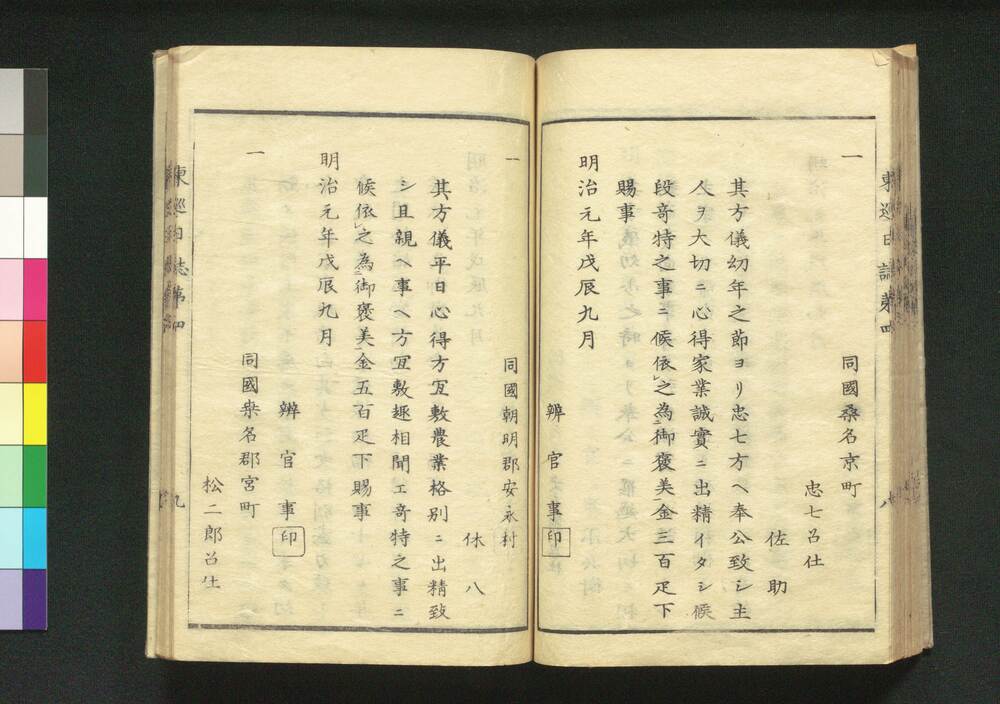 東巡日誌第四
一
同國桑名京町
忠七召仕
佐助
其方儀幼年之節ヨリ忠七方ヘ奉公致シ主
人ヲ大切ニ心得家業誠實ニ出精イタシ候
段奇特之事ニ候依之為御褒美金三百疋下
賜事
明治元年戊辰九月
辨官事印
一
同國朝明郡安永村
休八
其方儀平日心得方冝敷農業格別ニ出精致
シ且親ヘ事ヘ方冝敷趣相聞エ奇特之事ニ
候依之為御褒美金五百疋下賜事
明治元年戊辰九月
辨官事印
一
同國桒名郡宮町
松二郎召仕
東巡日誌第四
九